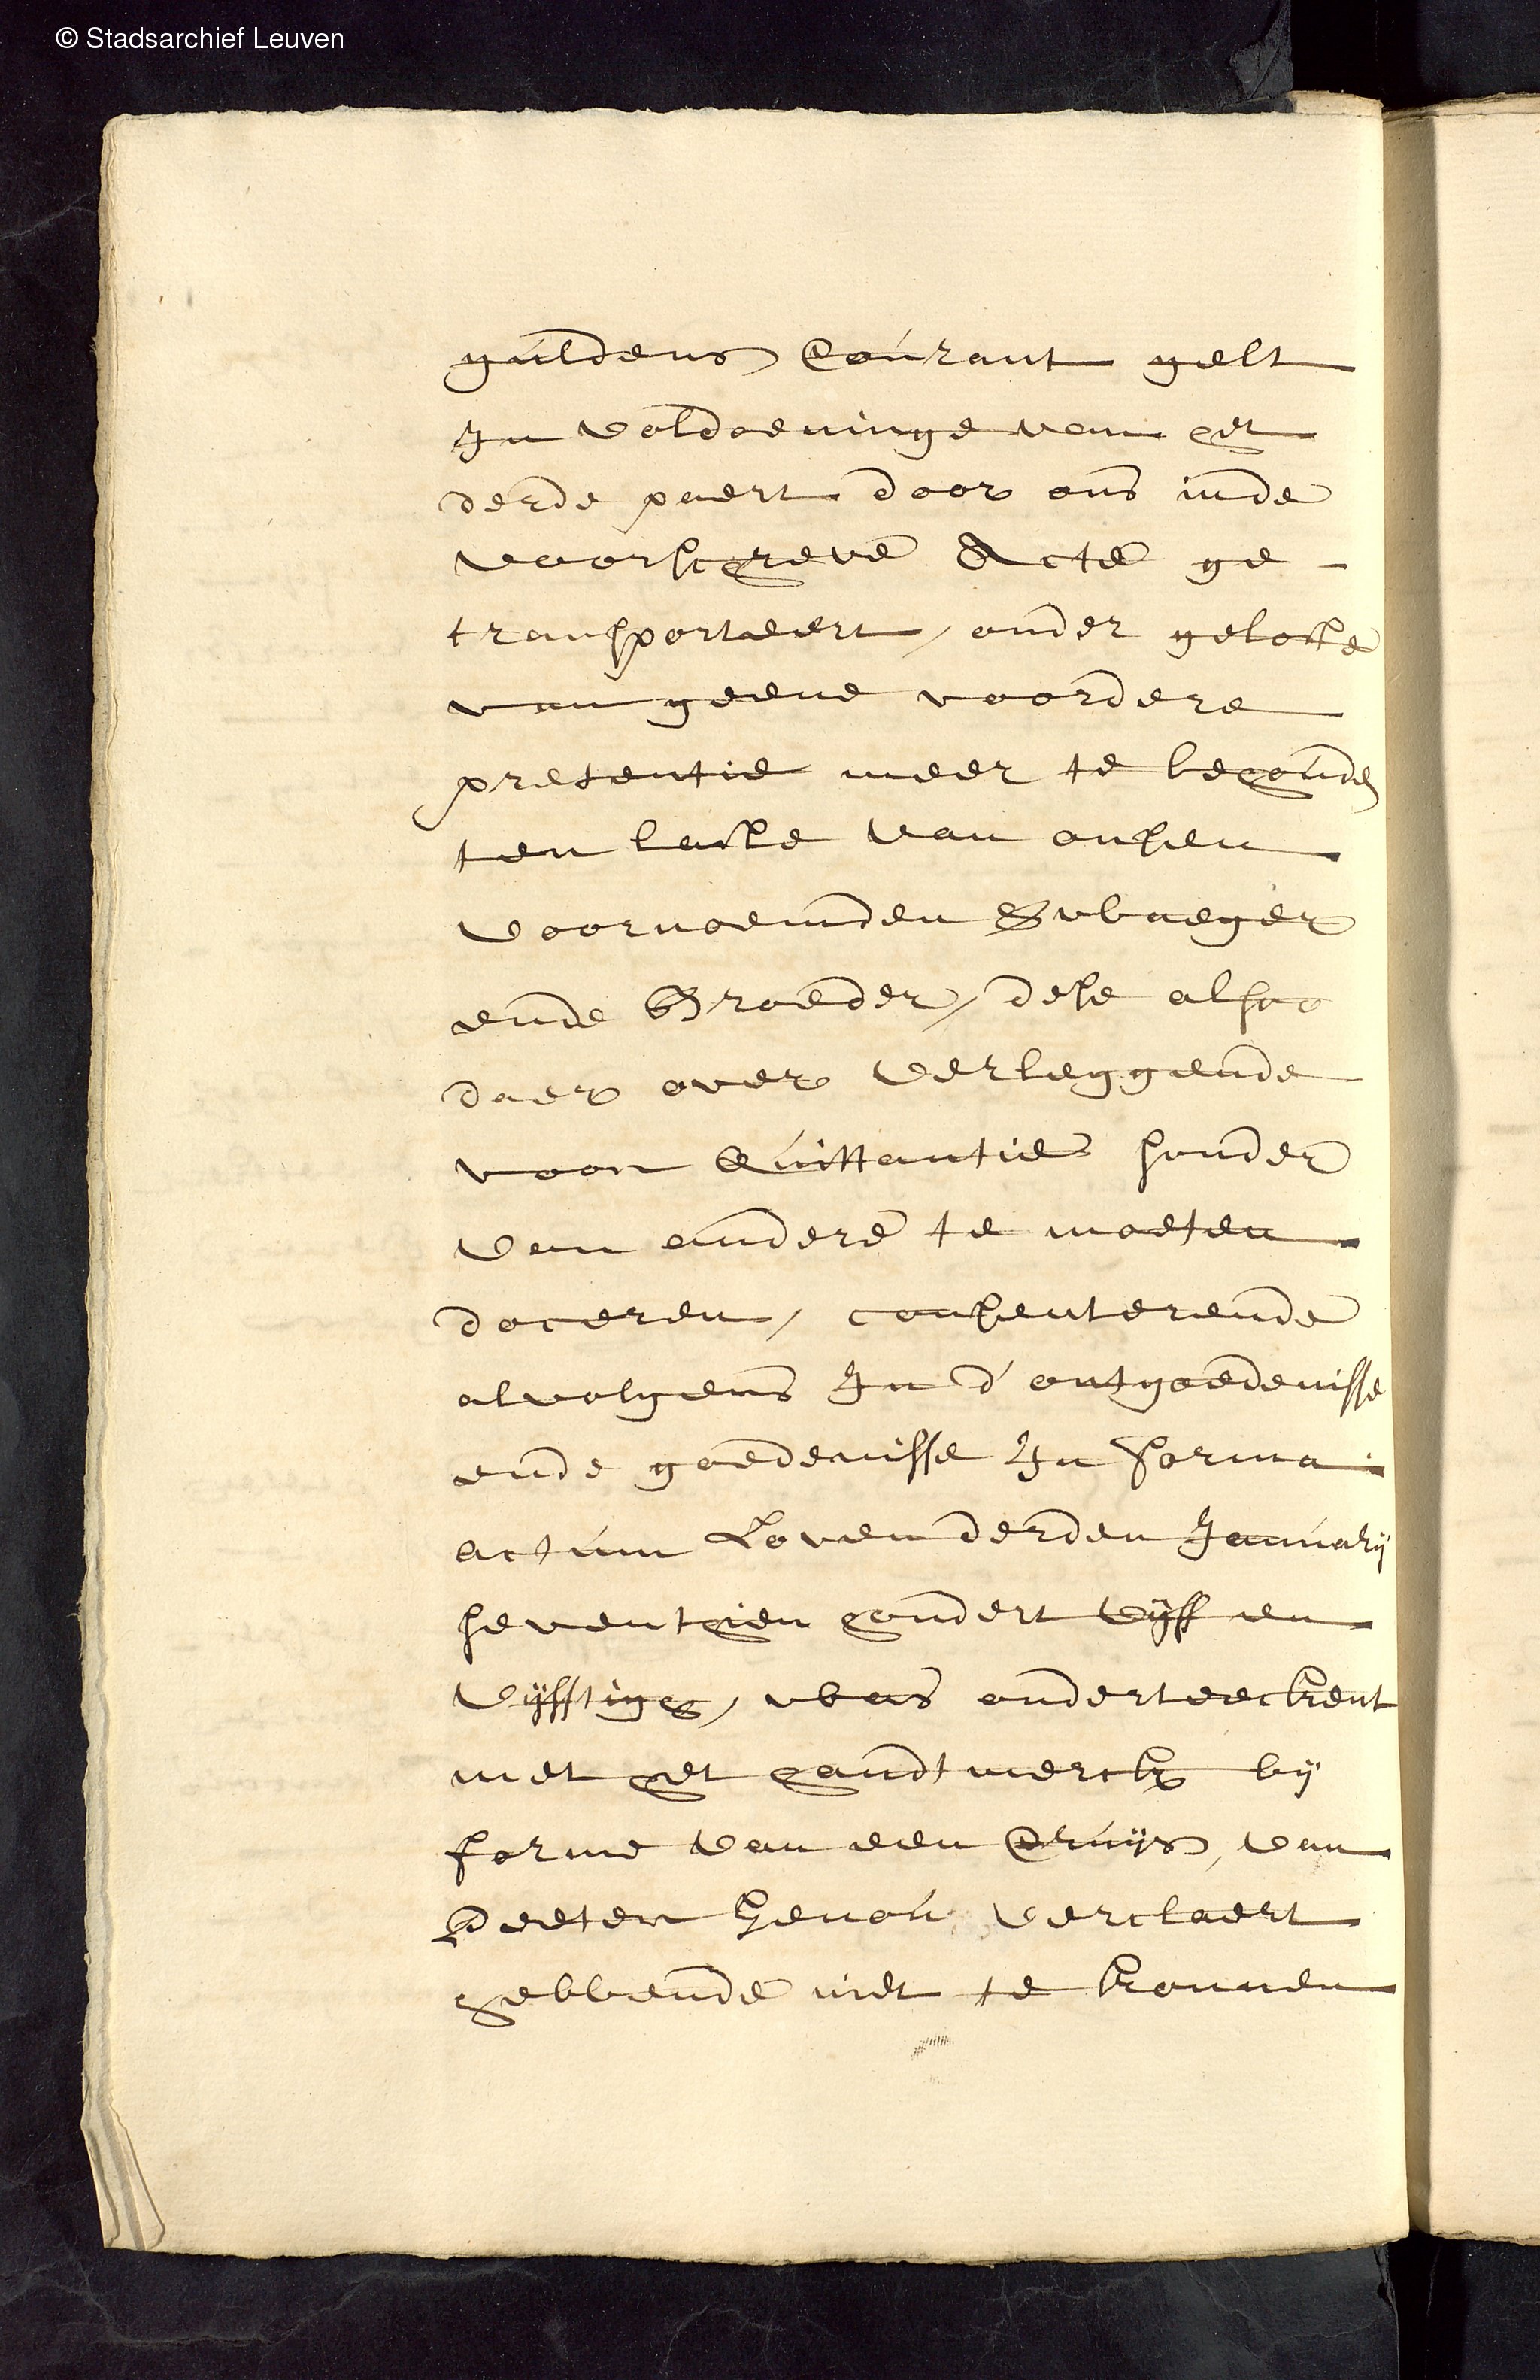 © Stadsarchief Leuven
guldens courant gelt
In voldoeninge van het
derde paert door ons inde
voorschreve Acte ge -
transporteert, onder gelofte
van geene voordere
pretentie meer te behoude
ten laste van onsen
voornoemden Swaeger
ende Broeder, dese alsoo
daer over verleggende
voor Quittantie sonder
van andere te moeten
doceren, consenterende
alvolgens In d'ontgoedenisse
ende goedenisse In forma
actum Loven derden January
seventhien hondert vyff en
vyfftigh, was onderteeckent
met het handtmerck by
forme van een Cruys, van
Peeter Henou verclaert
hebbende niet te konnen